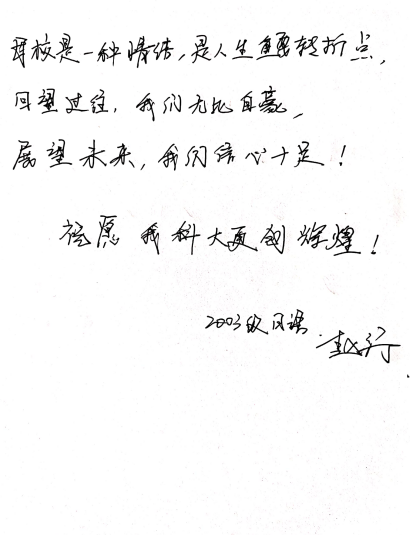 母校是一种情结,是人生重要转折点,
回望过往,我们无比自豪,
展望未来,我们信心十足!
祝愿我科大更创辉煌!
2003级日语